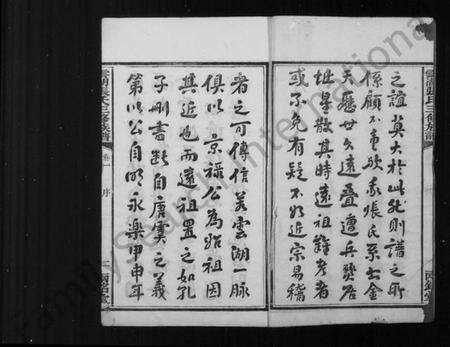 之誼莫大於此然則譜之所
係顧不重歟我張氏系出金
天歷世久遠疊遭兵燹居
址星散其時遠祖難考者
或不免有疑不如近宗易稽
者之可傳信若雲湖一脈
俱以京祿公為始祖因
其近也而遠祖置之如孔
子刪書斷自唐虞之義
第以公自明永樂甲申耳
卷一 序
FamilySearch International